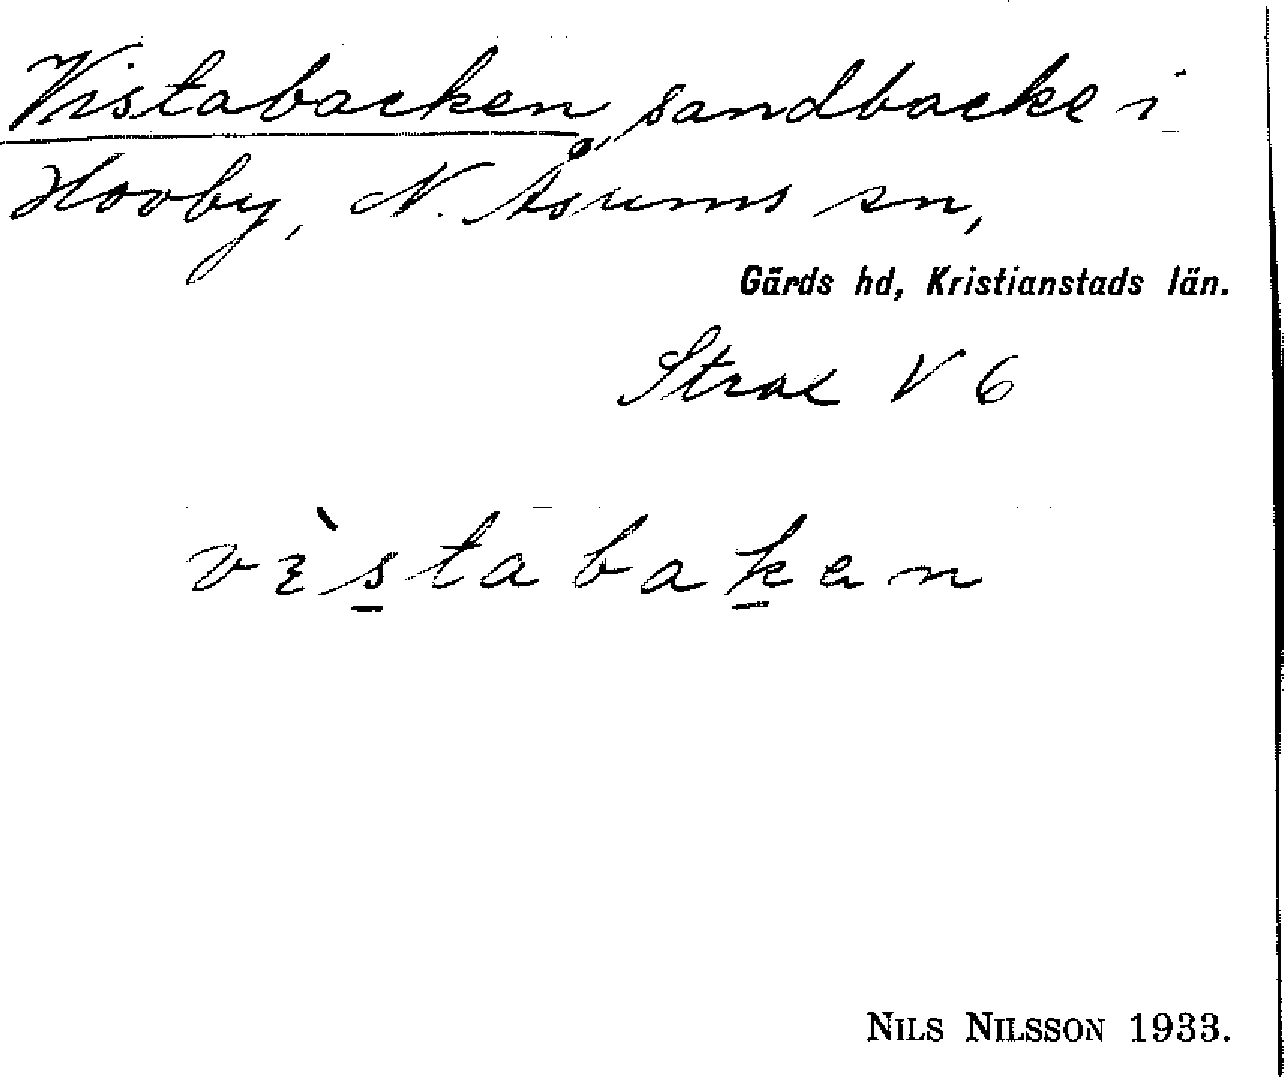 Vistabacken, sandbacke i
Hovby, N. Åsums sn,
Gärds hd, Kristianstads län.
V 6
vìstabaken
NILS NILSSON 1933.